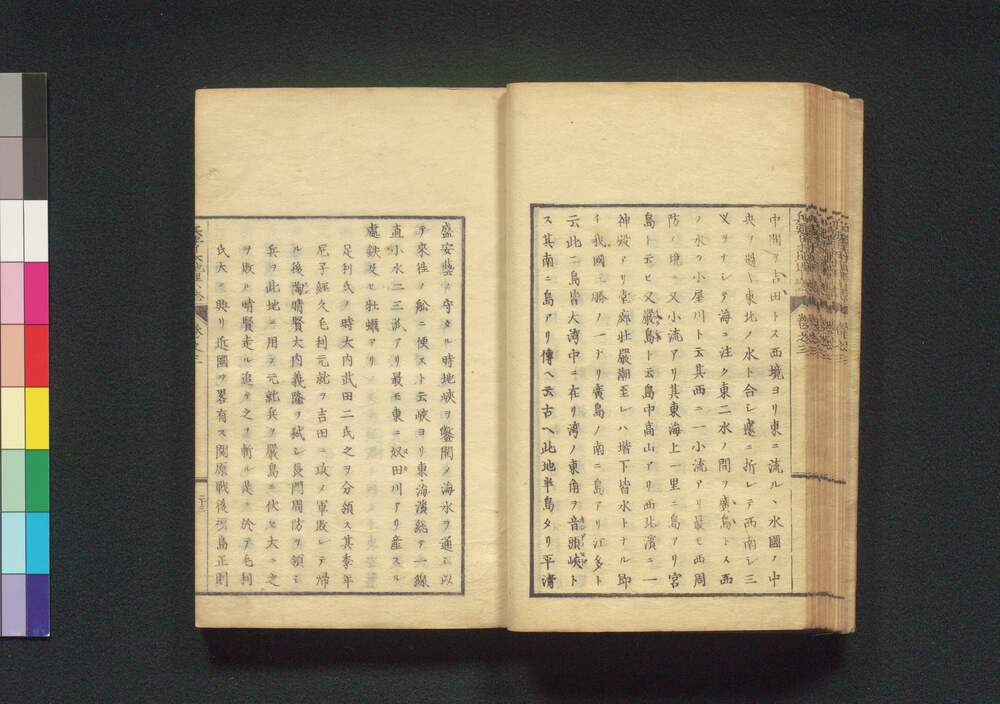 中間ヲ吉田トス西境ヨリ東ニ流ルヽ水國ノ中
央ヲ過キ東北ノ水ト合シ遽ニ折レテ西南シ三
叉ヲナシテ海ニ注ク東二水ノ間ヲ廣島トス西
ノ水ヲ小屋川ト云其西ニ一小流アリ最モ西周
防ノ境ニ又小流アリ其東海上一里ニ島アリ宮
島ト云ヒ又嚴島ト云島中高山アリ西北濱ニ一
神殿アリ堂廊壮嚴潮至レハ堦下皆水トナル即
チ我國三勝ノ一ナリ廣島ノ南ニ島アリ江多ト
云此二島皆大湾中ニ在リ湾ノ東角ヲ音頭峡ト
ス其南ニ島アリ傳ヘ云古ヘ此地半島タリ平清
盛安藝ノ守タル時地峡ヲ鑿開ノ海水ヲ通シ以
テ來往ノ舩ニ便スト云峡ヨリ東海濱總テ一線
直小水二三派アリ最モ東ニ奴田川アリ産スル
處鉄及ヒ牡蠣アリ
足利氏ノ時大内武田二氏之ヲ分領ス其季年
尼子經久毛利元就ヲ吉田ニ攻メ軍敗レテ帰
ル後陶晴賢大内義隆ヲ弑シ長門周防ヲ領シ
兵ヲ此地ニ用フ元就兵ヲ嚴島ニ伏セ大ニ之
ヲ敗ル晴賢走ル追テ之ヲ斬ル是ニ於テ毛利
氏大ニ興リ近國ヲ畧有ス関原戦後福島正則